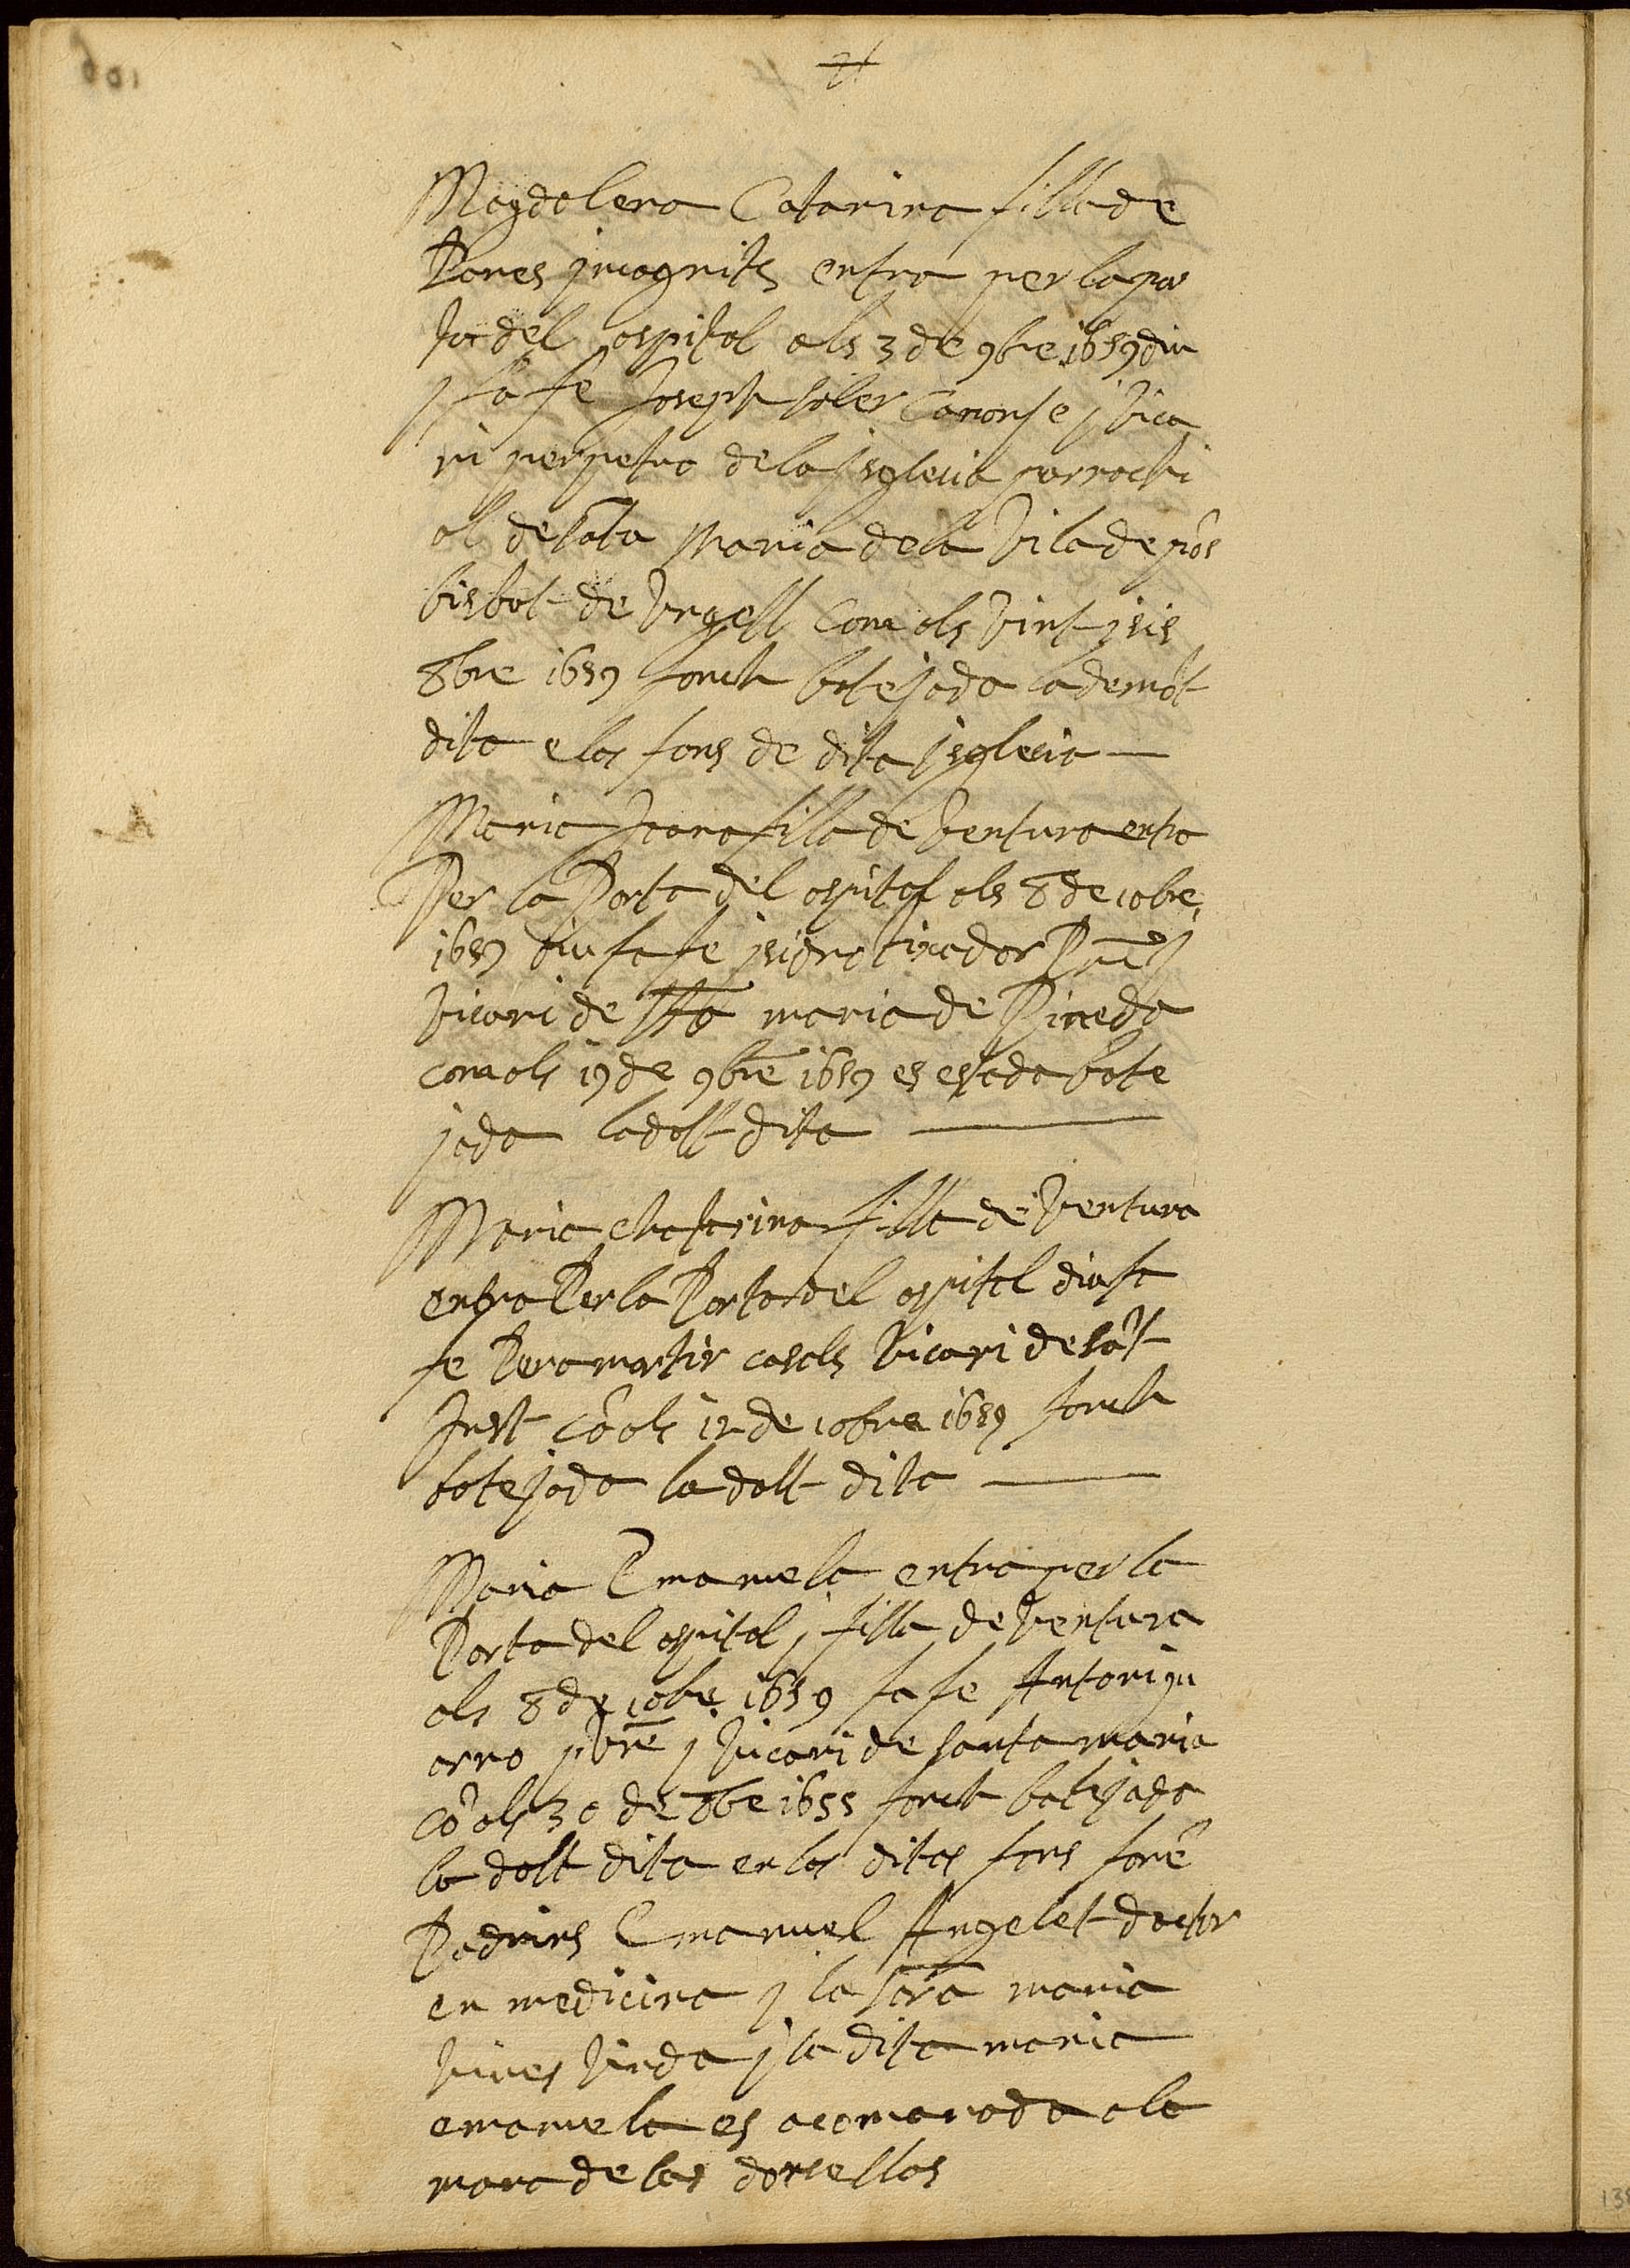 Magdalena Catarina filla de
Pares jncognits entra per la por
ta del ospital als 3 de 9bre 1659 diu
j fa fe Joseph soler Canonje j vica
ri perpetuo de la jsglesia parrochi
al de sata Maria de la Vila de pôs
bisbat de Vrgell Com als Vint j sis
8bre 1659 fonch batejada la demôt
dita e las fons de dita jsglesia
Maria Joana filla de Ventura entra
Per la Porta del ospital als 8 de 10bre
1659 diu fa fe jsidro
Vicari de Sta maria de Pineda
com als 19 de 9bre 1659 es estada bate
jada la dalt dita
Maria Chatarina filla de Ventura
entra Per la Porta del ospital diu fa
fe Pera martir casals Vicari de sât
Just cô als 12 de 10bre 1659 fonch
batejada la dalt dita
Maria Emanuela entra per la
Porta del ospital j filla de Ventura
als 8 de 10bre 1659 fa fe Antoni
arro pbre j Vicari de santa maria
cô als 30 de 8bre 1655 fonch batejada
la dalt dita en las ditas fons forê
Padrins Emanuel Angelet doctor
en medicina j la sôra maria
Viues Viuda j la dita maria
emanuela es acomanada a la
mara de las donsellas